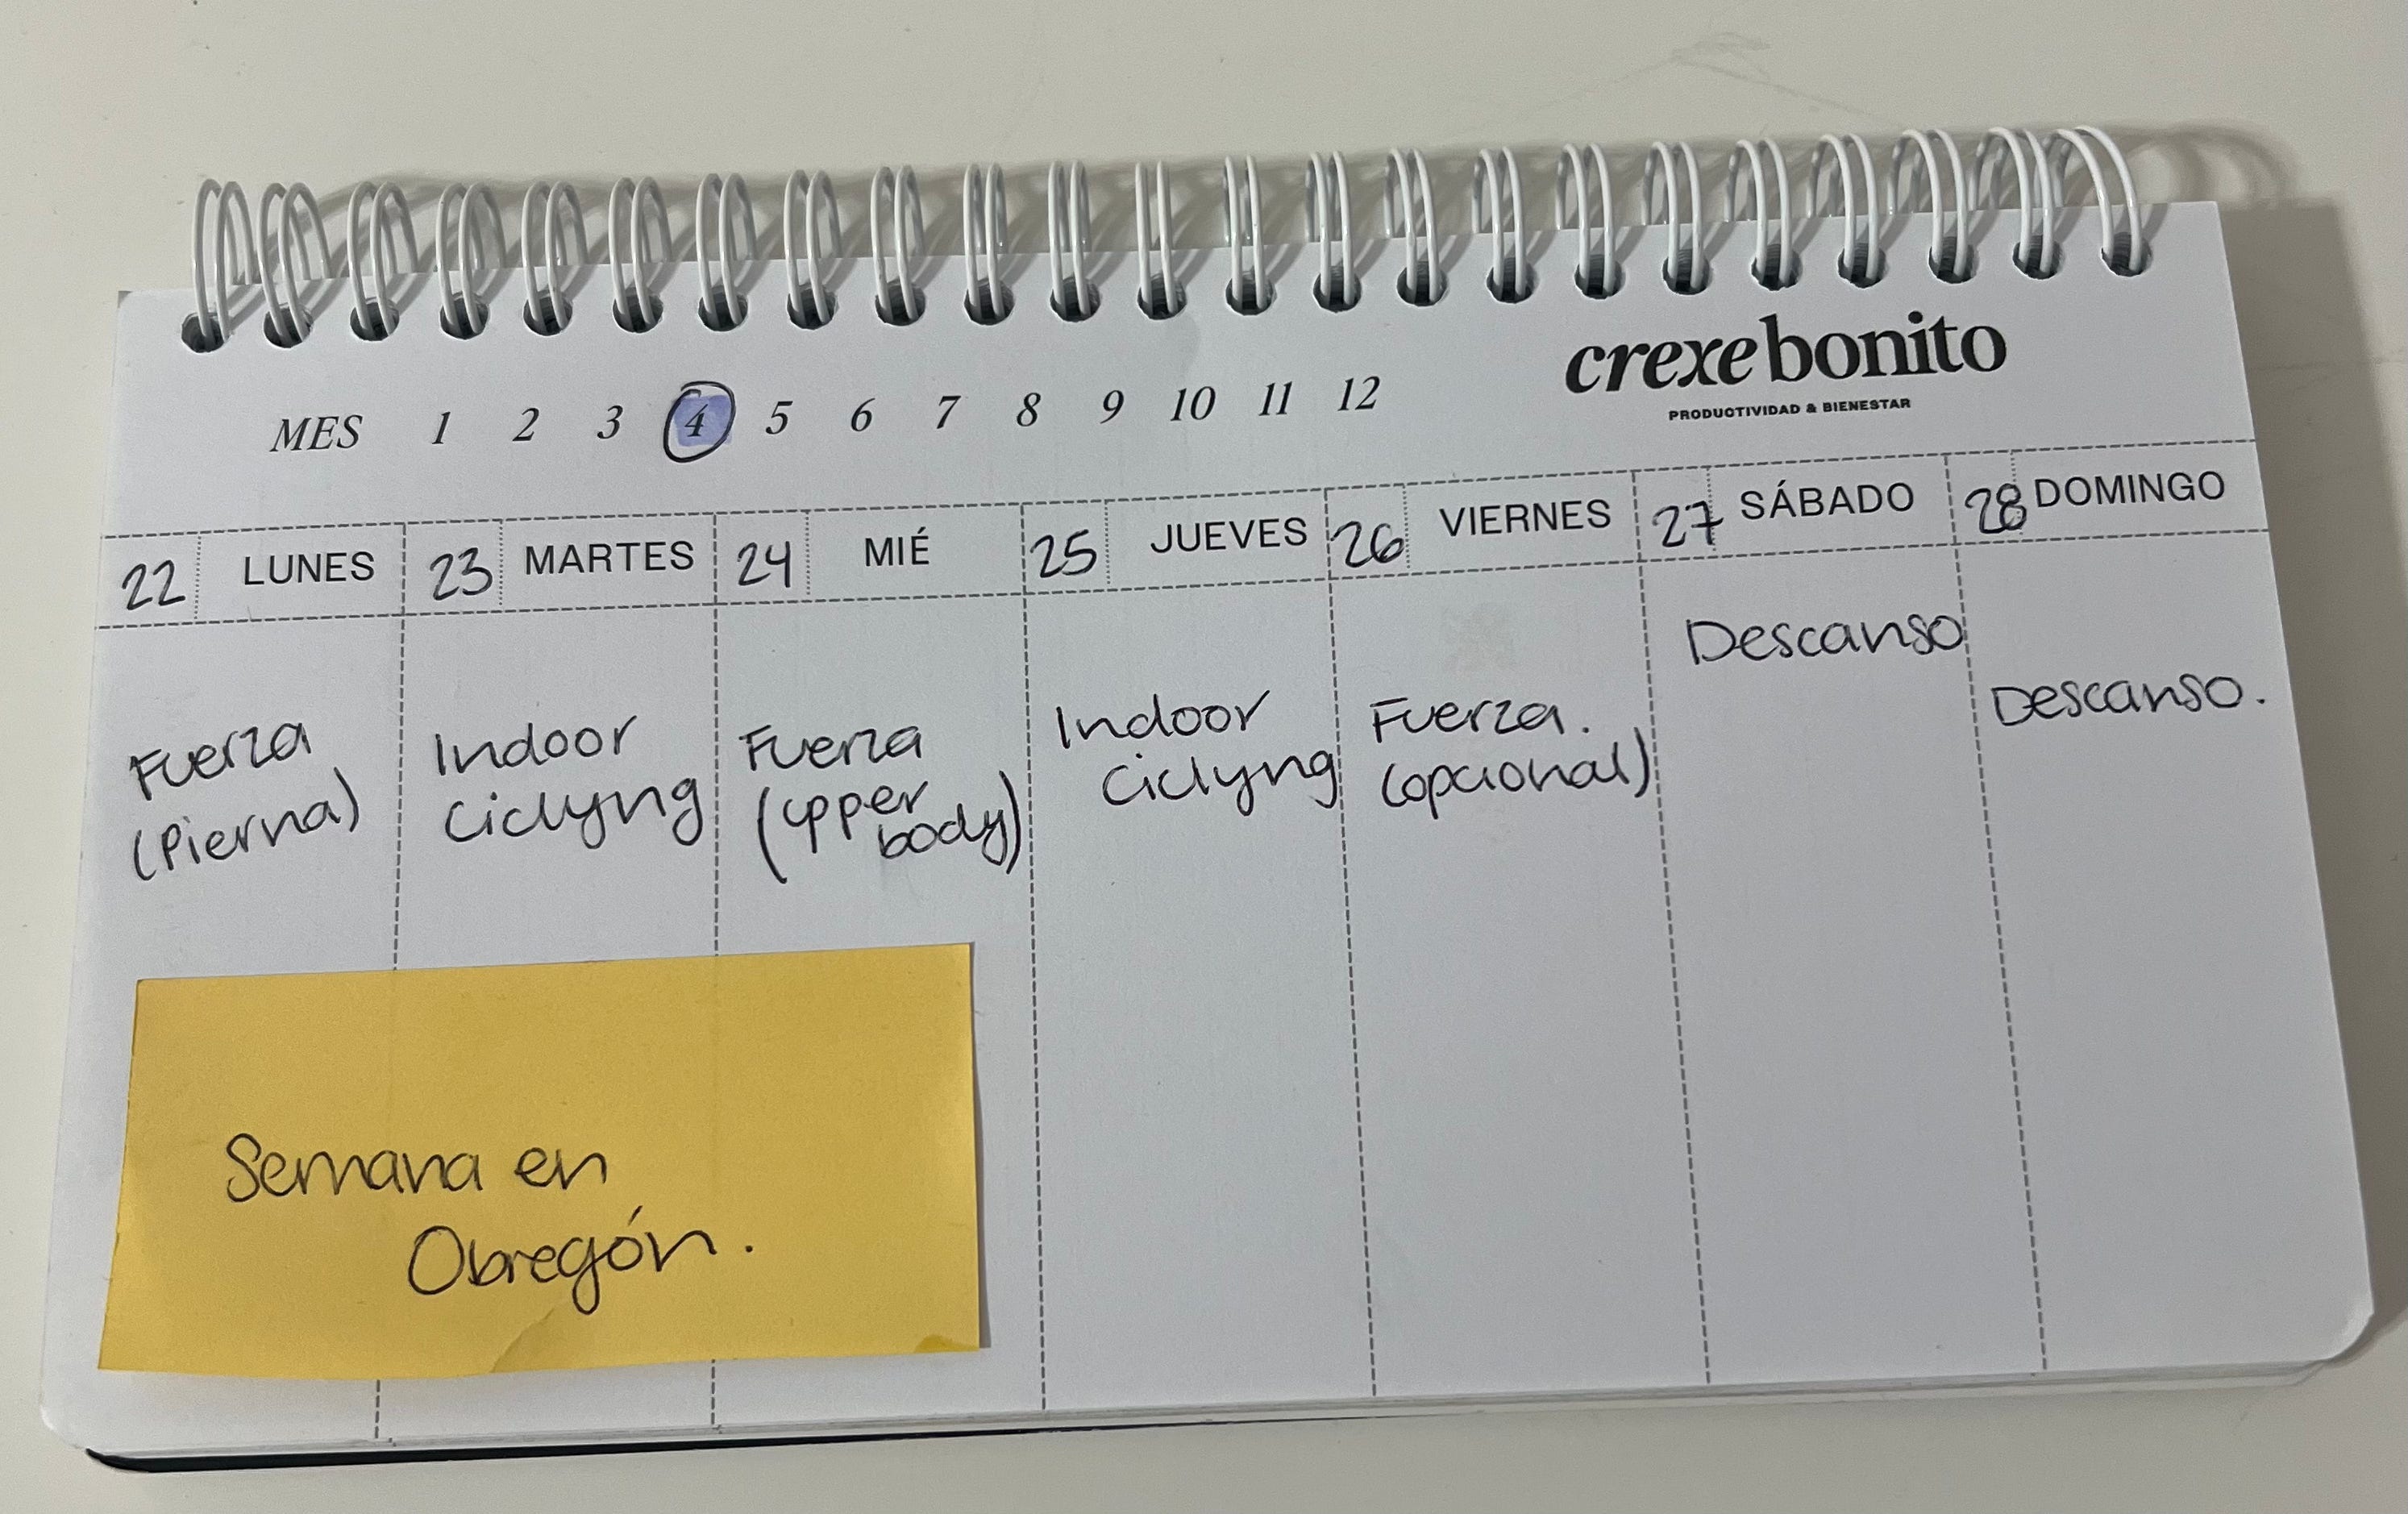 crexe bonito
PRODUCTIVIDAD & BIENESTAR
MES 1 2 3 4 5 6 7 8 9 10 11 12
22 LUNES 23 MARTES 24 MIÉ 25 JUEVES 26 VIERNES 27 SÁBADO 28 DOMINGO
Fuerza
(Pierna)
Indoor
Ciclyng
Fuerza
(upper
body)
Indoor
Ciclyng
Fuerza.
(opcional)
Descanso
Descanso.
Semana en
Obregón.